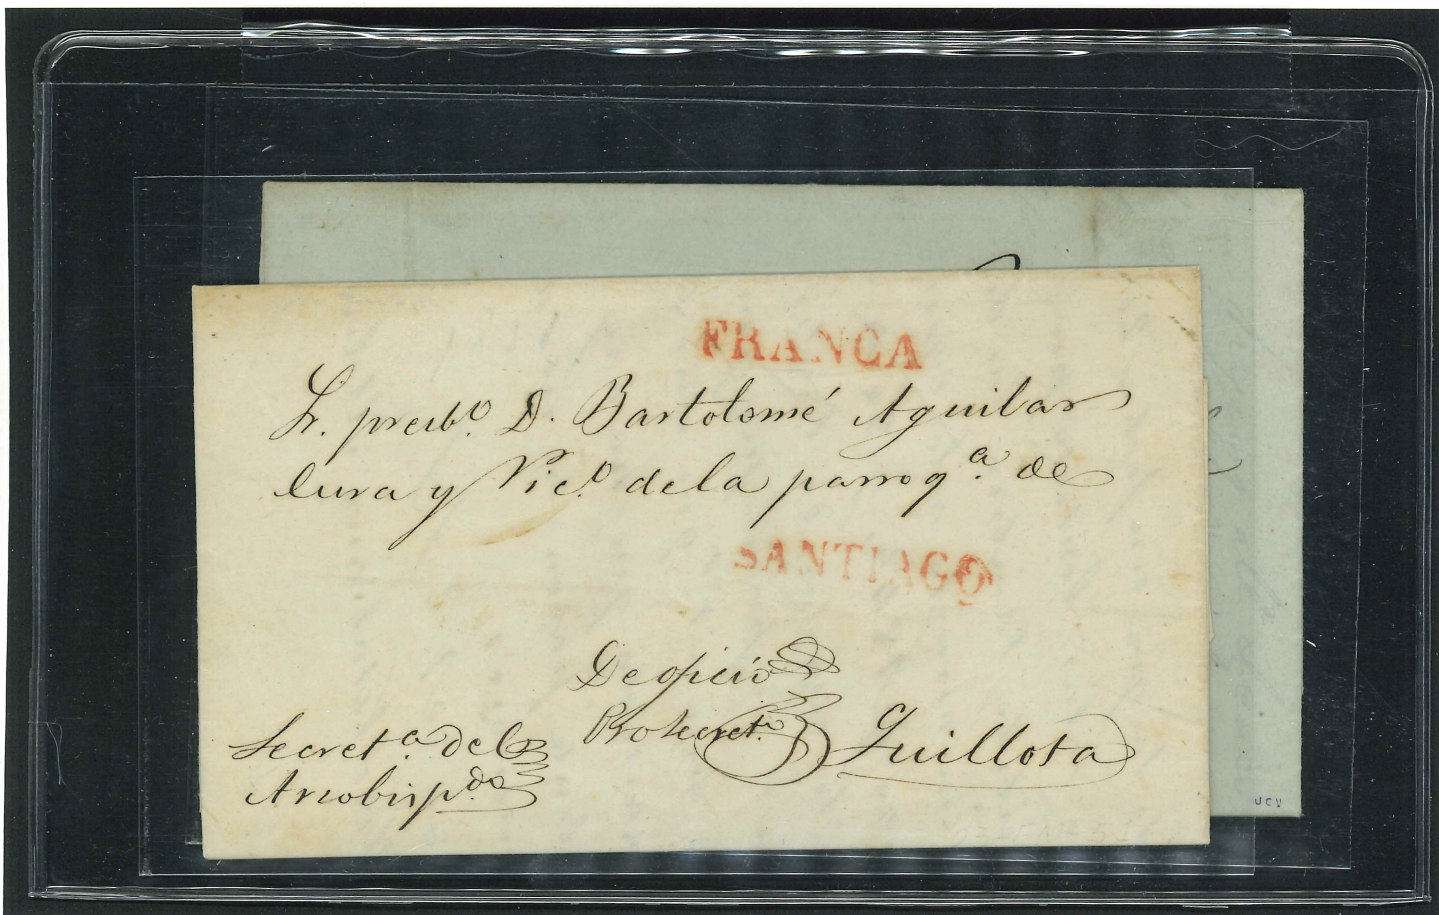 FRANCA
Sr. presb.º D. Bartolomé Aguilar
Cura y Vic.º de la parroq.ª de
SANTIAGO
De oficio
Prosecret.º
Quillota
Secret.ª del
Arzobispdo
UCV